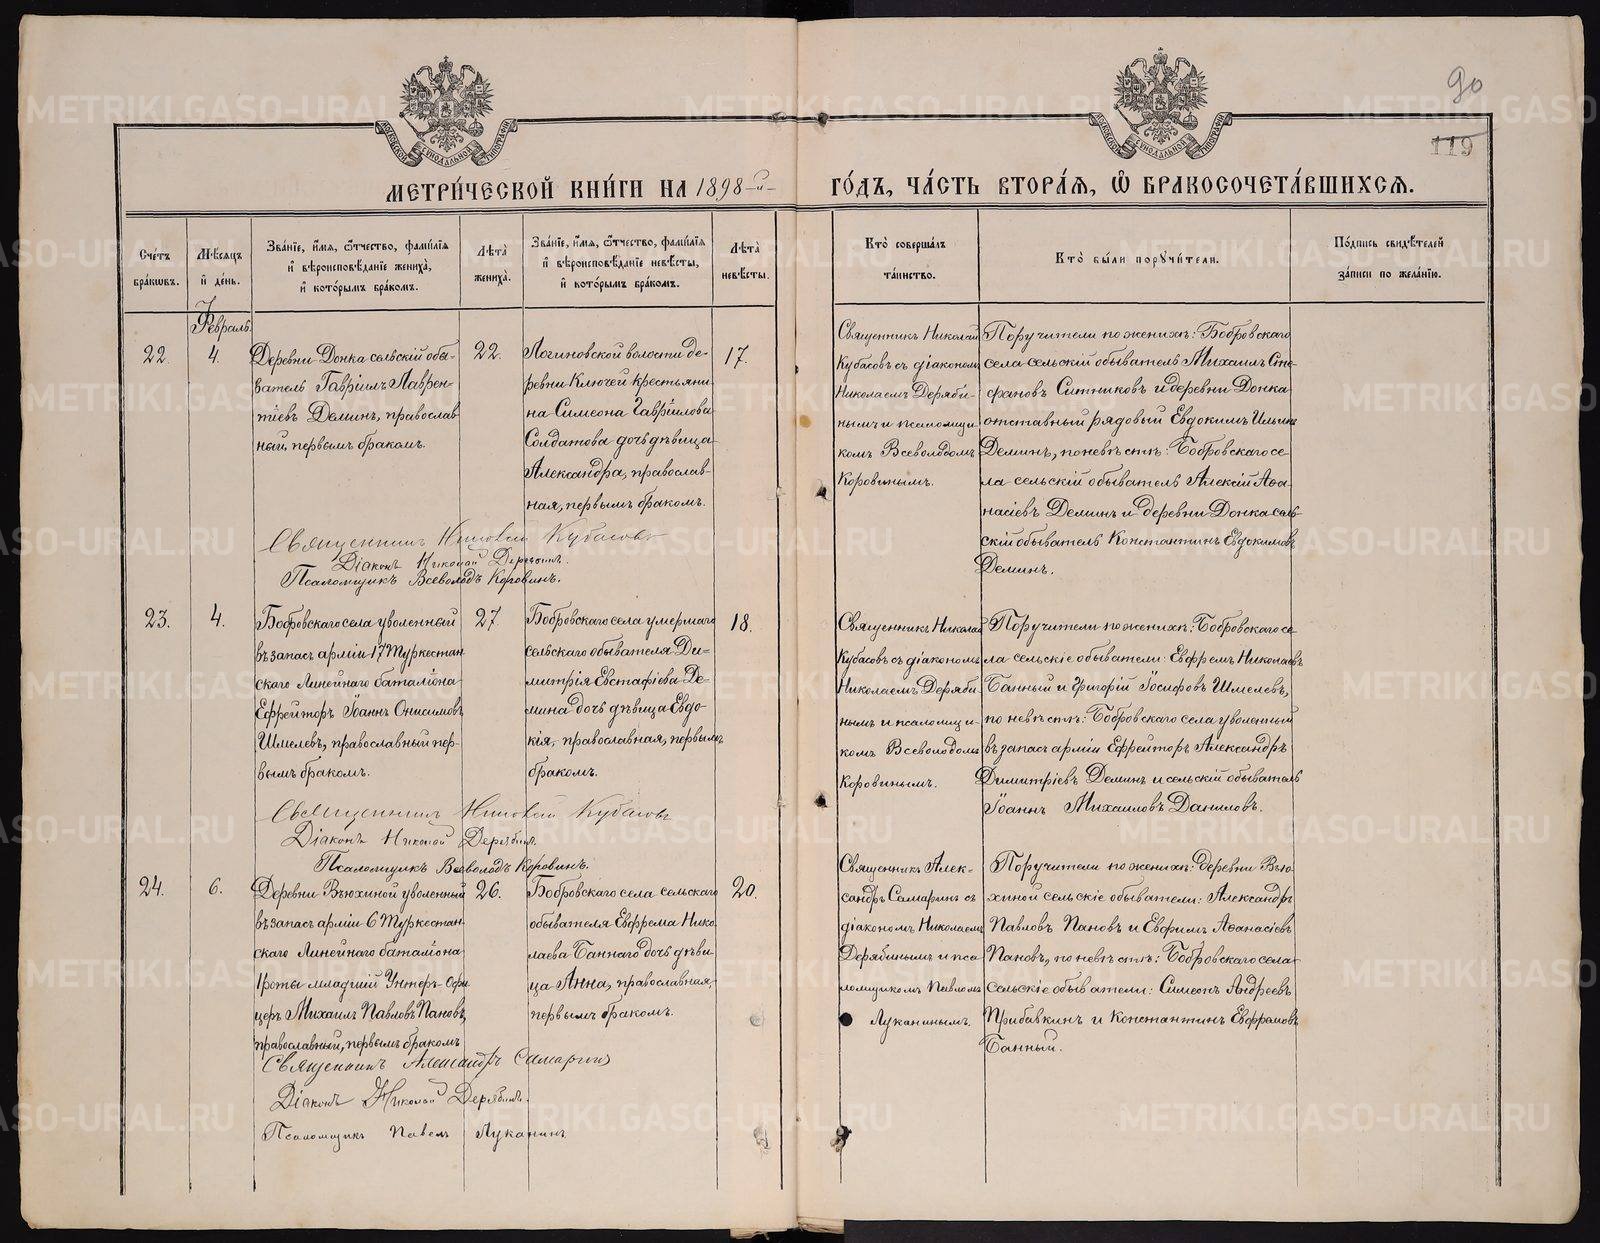 90
119
МЕТРИ́ЧЕСКОЙ КНИ́ГИ НА 1898-й- ГО́ДЪ, ЧА́СТЬ ВТОРА́Я, Ѽ БРАКОСОЧЕТА́ВШИХСЯ.
Сче́тъ бра́кѡвъ.
Мѣ́сяцъ и҆ де́нь.
Зва́нїе, и҆́мя, ѻ҆́тчество, фами́лїя
и҆ вѣроисповѣ́данїе жениха̀,
и҆ кото́рымъ бра́комъ.
Лѣта̀ жениха̀.
Зва́нїе, и҆́мя, ѻ҆́тчество, фами́лїя
и҆ вѣроисповѣ́данїе невѣ́сты,
и҆ кото́рымъ бра́комъ.
Лѣта̀ невѣ́сты.
Кто̀ соверша́лъ
та́инство.
Кто̀ бы́ли порꙋчи́тели.
По́дпись свидѣ́телей
за́писи по жела́нїю.
Февраль.
22.
4.
Деревни Донка сельскій обы-
ватель Гавріилъ Лаврен-
тіевъ Деминъ, православ
ный, первымъ бракомъ.
22.
Логиновской волости де-
ревни Ключей крестьяни
на Симеона Гавріилова
Солдатова дочь дѣвица
Александра, православ-
ная, первымъ бракомъ.
17.
Священникъ Николай
Кубасовъ съ діакономъ
Николаемъ Деряби-
нымъ и псаломщи
комъ Всеволодомъ
Коровинымъ.
Поручители по женихѣ: Бобровскаго
села сельскій обыватель Михаилъ Сте-
фановъ Ситниковъ и деревни Донка
отставный рядовый Евдокимъ Ильинъ
Деминъ, по невѣстѣ: Бобровскаго се-
ла сельскій обыватель Алексій Аѳа-
насіевъ Деминъ и деревни Донка сель-
скій обыватель Константинъ Евдокимовъ
Деминъ.
Священникъ Николай Кубасовъ
Діаконъ Николай Дерябинъ.
Псаломщикъ Всеволодъ Коровинъ.
23.
4.
Бобровскаго села уволенный
въ запасъ арміи 17 Туркестан
скаго Линейнаго баталіона
Ефрейторъ Іоаннъ Онисимовъ
Шмелевъ, православный пер-
вымъ бракомъ.
27.
Бобровскаго села умершаго
сельскаго обывателя Ди-
митрія Евстафіева Де-
мина дочь дѣвица Евдо-
кія, православная, первымъ
бракомъ.
18.
Священникъ Николай
Кубасовъ съ діакономъ
Николаемъ Деряби-
нымъ и псаломщи-
комъ Всеволодомъ
Коровинымъ.
Поручители по женихѣ: Бобровскаго се
ла сельскіе обыватели: Евфремъ Николаевъ
Банный и Григорій Іосифовъ Шмелевъ,
по невѣстѣ: Бобровскаго села уволенный
въ запасъ арміи Ефрейторъ Александръ
Димитріевъ Деминъ и сельскій обыватель
Іоаннъ Михаиловъ Даниловъ.
Священникъ Николай Кубасовъ
Діаконъ Николай Дерябинъ.
Псаломщикъ Всеволодъ Коровинъ.
24.
6.
Деревни Вьюхиной уволенный
въ запасъ арміи 6 Туркестан
скаго Линейнаго баталіона
роты младшій Унтеръ-Офи
церъ Михаилъ Павловъ Пановъ,
православный, первымъ бракомъ
26.
Бобровскаго села сельскаго
обывателя Евфрема Нико
лаева Баннаго дочь дѣви
ца Анна, православная,
первымъ бракомъ.
20.
Священникъ Алек-
сандръ Самаринъ съ
діакономъ Николаемъ
Дерябинымъ и пса
ломщикомъ Павломъ
Луканинымъ.
Поручители по женихѣ: деревни Вью
хиной сельскіе обыватели: Александръ
Павловъ Пановъ и Евфимъ Аѳанасіевъ
Пановъ, по невѣстѣ: Бобровскаго села
сельскіе обыватели: Симеонъ Андреевъ
Прибавкинъ и Константинъ Евфремовъ
Банный.
Священникъ Александръ Самаринъ
Діаконъ Николай Дерябинъ.
Псаломщикъ Павелъ Луканинъ
METRIKI.GASO-URAL.RU